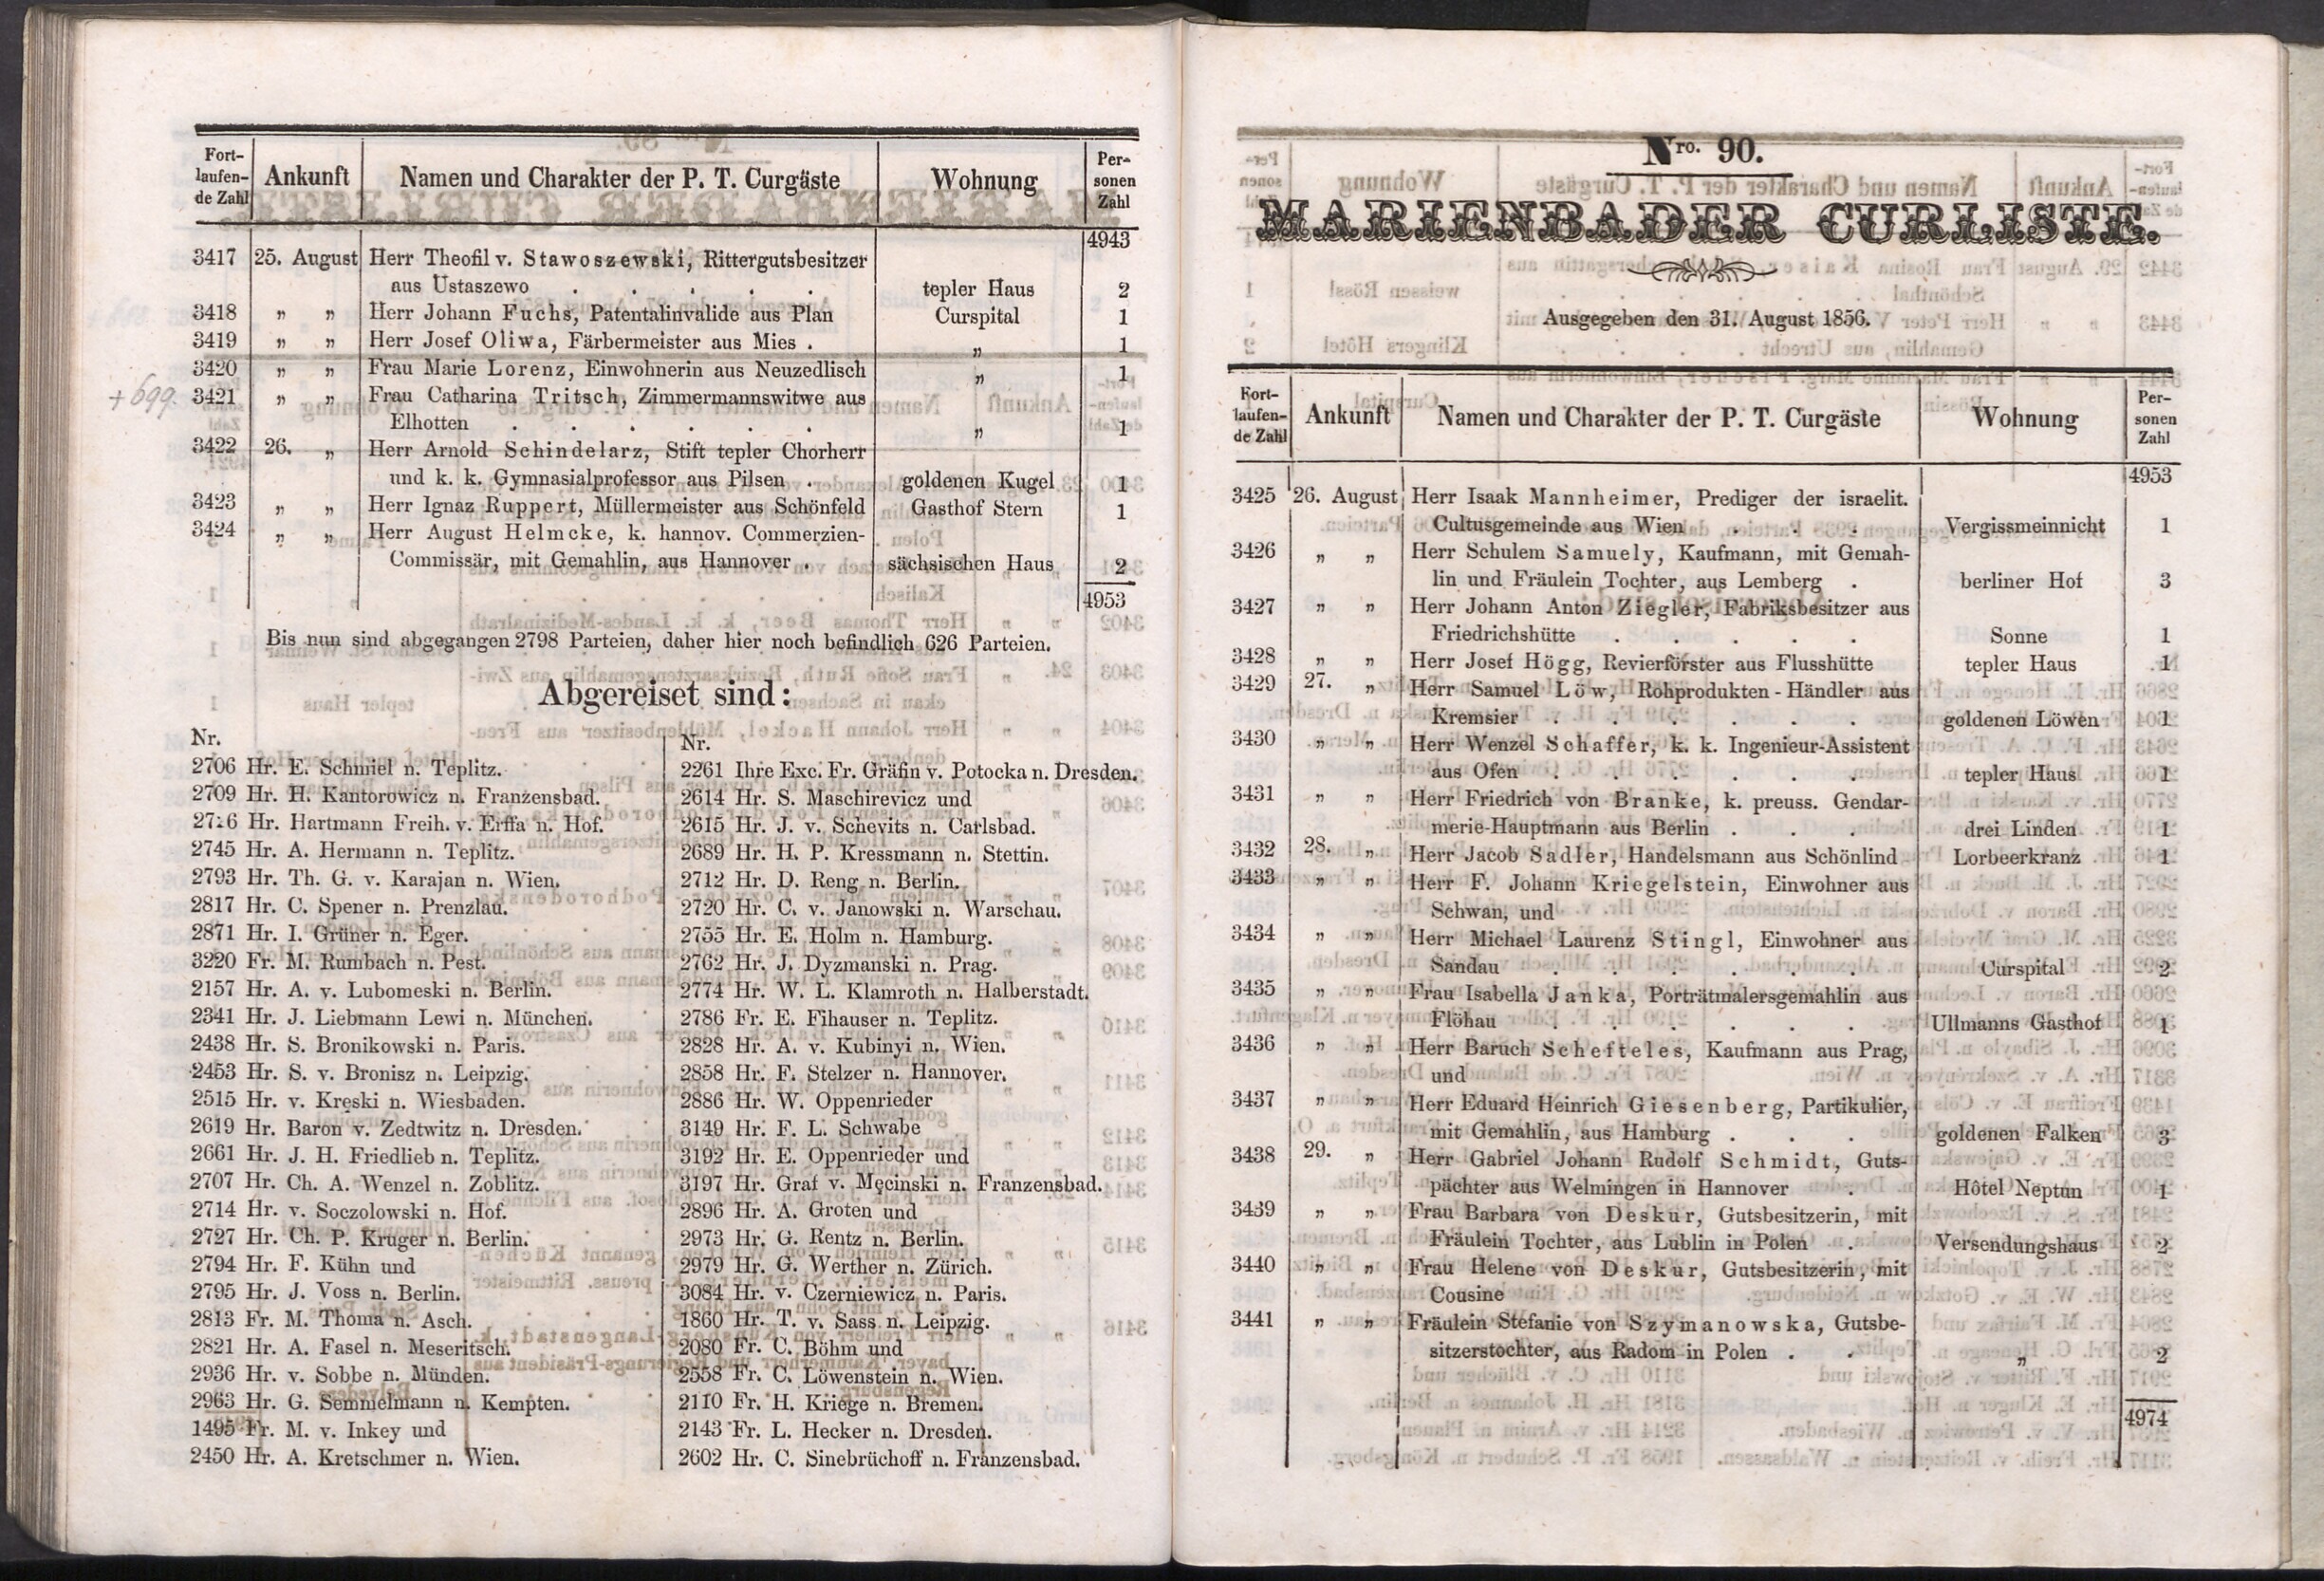 Fort-
laufen-
de Zahl
Ankunft
Namen und Charakter der P. T. Curgäste
Wohnung
Per-
sonen
Zahl
4943
3417 25. August Herr Theofil v. Stawoszewski, Rittergutsbesitzer
aus Ustaszewo . . . . . tepler Haus 2
3418 „ „ Herr Johann Fuchs, Patentalinvalide aus Plan Curspital 1
3419 „ „ Herr Josef Oliwa, Färbermeister aus Mies . „ 1
3420 „ „ Frau Marie Lorenz, Einwohnerin aus Neuzedlisch „ 1
+ 699. 3421 „ „ Frau Catharina Tritsch, Zimmermannswitwe aus
Elhotten . . . . . . „ 1
3422 26. „ Herr Arnold Schindelarz, Stift tepler Chorherr
und k. k. Gymnasialprofessor aus Pilsen . goldenen Kugel 1
3423 „ „ Herr Ignaz Ruppert, Müllermeister aus Schönfeld Gasthof Stern 1
3424 „ „ Herr August Helmcke, k. hannov. Commerzien-
Commissär, mit Gemahlin, aus Hannover . sächsischen Haus 2
4953
Bis nun sind abgegangen 2798 Parteien, daher hier noch befindlich 626 Parteien.
Abgereiset sind:
Nr.
2706 Hr. E. Schmiel n. Teplitz.
2709 Hr. H. Kantorowicz n. Franzensbad.
2716 Hr. Hartmann Freih. v. Erffa n. Hof.
2745 Hr. A. Hermann n. Teplitz.
2793 Hr. Th. G. v. Karajan n. Wien.
2817 Hr. C. Spener n. Prenzlau.
2871 Hr. I. Grüner n. Eger.
3220 Fr. M. Rumbach n. Pest.
2157 Hr. A. v. Lubomeski n. Berlin.
2341 Hr. J. Liebmann Lewi n. München.
2438 Hr. S. Bronikowski n. Paris.
2453 Hr. S. v. Bronisz n. Leipzig.
2515 Hr. v. Kręski n. Wiesbaden.
2619 Hr. Baron v. Zedtwitz n. Dresden.
2661 Hr. J. H. Friedlieb n. Teplitz.
2707 Hr. Ch. A. Wenzel n. Zöblitz.
2714 Hr. v. Soczolowski n. Hof.
2727 Hr. Ch. P. Krüger n. Berlin.
2794 Hr. F. Kühn und
2795 Hr. J. Voss n. Berlin.
2813 Fr. M. Thoma n. Asch.
2821 Hr. A. Fasel n. Meseritsch.
2936 Hr. v. Sobbe n. Münden.
2963 Hr. G. Semmelmann n. Kempten.
1495 Fr. M. v. Inkey und
2450 Hr. A. Kretschmer n. Wien.
Nr.
2261 Ihre Exc. Fr. Gräfin v. Potocka n. Dresden.
2614 Hr. S. Maschirevicz und
2615 Hr. J. v. Schevits n. Carlsbad.
2689 Hr. H. P. Kressmann n. Stettin.
2712 Hr. D. Reng n. Berlin.
2720 Hr. C. v. Janowski n. Warschau.
2755 Hr. E. Holm n. Hamburg.
2762 Hr. J. Dyzmanski n. Prag.
2774 Hr. W. L. Klamroth n. Halberstadt.
2786 Fr. E. Fihauser n. Teplitz.
2828 Hr. A. v. Kubinyi n. Wien.
2858 Hr. F. Stelzer n. Hannover.
2886 Hr. W. Oppenrieder
3149 Hr. F. L. Schwabe
3192 Hr. E. Oppenrieder und
3197 Hr. Graf v. Męcinski n. Franzensbad.
2896 Hr. A. Groten und
2973 Hr. G. Rentz n. Berlin.
2979 Hr. G. Werther n. Zürich.
3084 Hr. v. Czerniewicz n. Paris.
1860 Hr. T. v. Sass n. Leipzig.
2080 Fr. C. Böhm und
2558 Fr. C. Löwenstein n. Wien.
2110 Fr. H. Kriege n. Bremen.
2143 Fr. L. Hecker n. Dresden.
2602 Hr. C. Sinebrüchoff n. Franzensbad.
Nro. 90.
MARIENBADER CURLISTE.
Ausgegeben den 31. August 1856.
Fort-
laufen-
de Zahl
Ankunft
Namen und Charakter der P. T. Curgäste
Wohnung
Per-
sonen
Zahl
4953
3425 26. August Herr Isaak Mannheimer, Prediger der israelit.
Cultusgemeinde aus Wien . . . Vergissmeinnicht 1
3426 „ „ Herr Schulem Samuely, Kaufmann, mit Gemah-
lin und Fräulein Tochter, aus Lemberg . berliner Hof 3
3427 „ „ Herr Johann Anton Ziegler, Fabriksbesitzer aus
Friedrichshütte . . . . . Sonne 1
3428 „ „ Herr Josef Högg, Revierförster aus Flusshütte tepler Haus 1
3429 27. „ Herr Samuel Löw, Rohprodukten-Händler aus
Kremsier . . . . . . goldenen Löwen 1
3430 „ „ Herr Wenzel Schaffer, k. k. Ingenieur-Assistent
aus Ofen . . . . . . tepler Haus 1
3431 „ „ Herr Friedrich von Branke, k. preuss. Gendar-
merie-Hauptmann aus Berlin . . . drei Linden 1
3432 28. „ Herr Jacob Sadler, Handelsmann aus Schönlind Lorbeerkranz 1
3433 „ „ Herr F. Johann Kriegelstein, Einwohner aus
Schwan, und
3434 „ „ Herr Michael Laurenz Stingl, Einwohner aus
Sandau . . . . . . Curspital 2
3435 „ „ Frau Isabella Janka, Porträtmalersgemahlin aus
Flöhau . . . . . . Ullmanns Gasthof 1
3436 „ „ Herr Baruch Schefteles, Kaufmann aus Prag,
und
3437 „ „ Herr Eduard Heinrich Giesenberg, Partikulier,
mit Gemahlin, aus Hamburg . . . goldenen Falken 3
3438 29. „ Herr Gabriel Johann Rudolf Schmidt, Guts-
pächter aus Welmingen in Hannover . Hôtel Neptun 1
3439 „ „ Frau Barbara von Deskur, Gutsbesitzerin, mit
Fräulein Tochter, aus Lublin in Polen . Versendungshaus 2
3440 „ „ Frau Helene von Deskur, Gutsbesitzerin, mit
Cousine
3441 „ „ Fräulein Stefanie von Szymanowska, Gutsbe-
sitzerstochter, aus Radom in Polen . . „ 2
4974